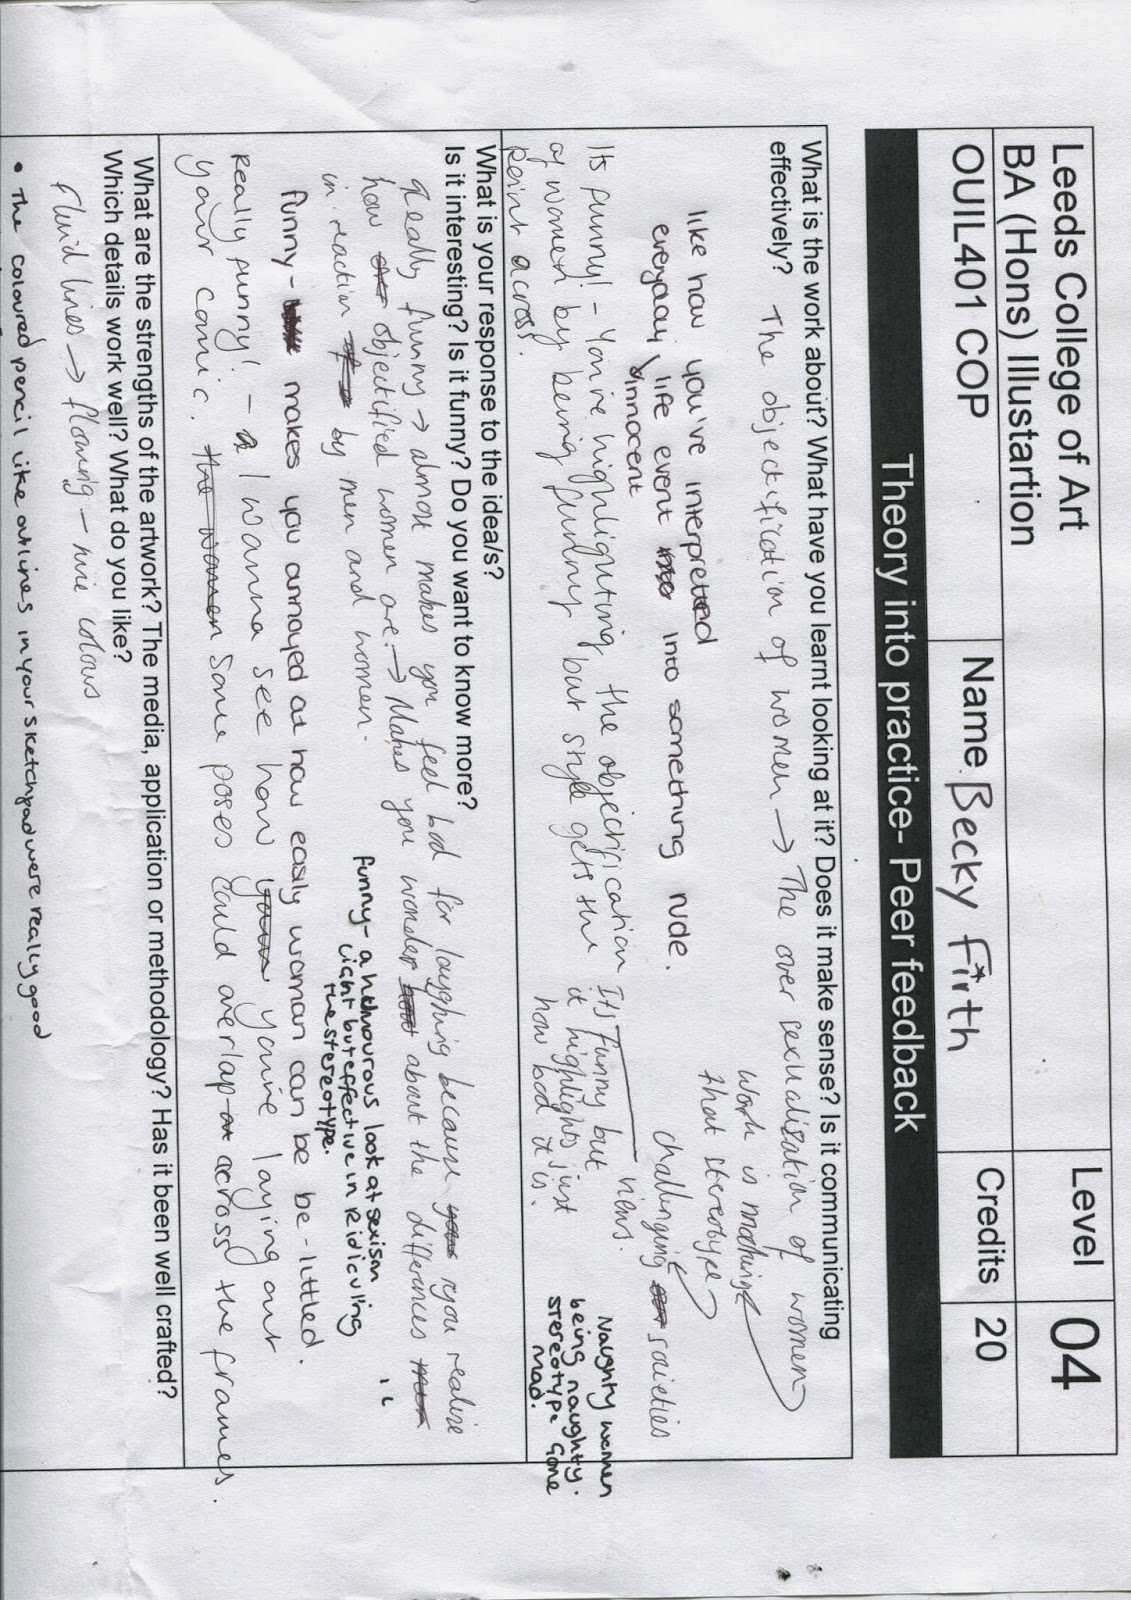 Leeds College of Art
BA (Hons) Illustartion
Level
04
OUIL401 COP
Name Becky Firth
Credits
20
Theory into practice- Peer feedback
What is the work about? What have you learnt looking at it? Does it make sense? Is it communicating
effectively?
The objectification of women → The over sexualisation of women
work is mocking
that stereotype
like how you've interpretted
everyday innocent life event into something rude.
challenging societies
views.
Its funny! - You're highlighting the objectification
of women by being funny but style gets the
point across.
Its Funny but
it highlights just
how bad it is.
Naughty women
being naughty.
stereotype gone
mad.
What is your response to the idea/s?
Is it interesting? Is it funny? Do you want to know more?
Really funny → almost makes you feel bad for laughing because you realise
how objectified women are. → Makes you wonder about the differences
in reaction by men and women.
funny - a humourous look at sexism
light but effective in ridiculing
the stereotype.
funny - makes you annoyed at how easily woman can be be-littled.
Really funny! - I wanna see how you're laying out
your comic. Some poses could overlap across the frames.
What are the strengths of the artwork? The media, application or methodology? Has it been well crafted?
Which details work well? What do you like?
Fluid lines → flowing - nice colours
• The coloured pencil like outlines in your sketchpad were really good